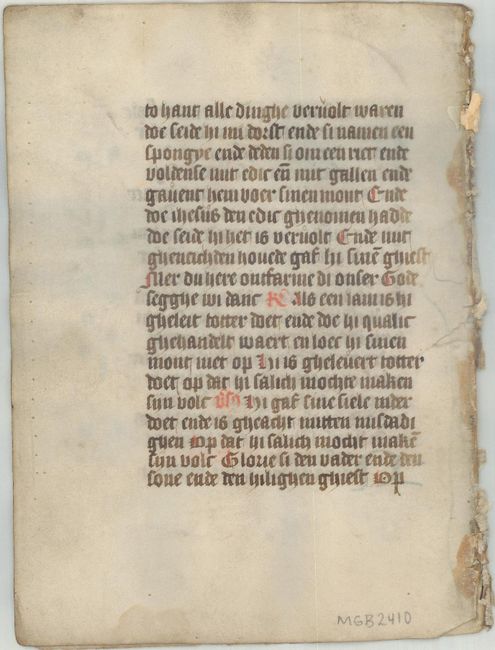 to hant alle dinghe veruolt waren
doe seide hi mi dorst ende si namen een
spongye ende deden si om een riet ende
voldense mit edic en̄ mit gallen ende
gauent hem voer sinen mont Ende
doe ihesus den edic ghenomen hadde
doe seide hi het is veruolt Ende mit
gheneichden houede gaf hi sinē ghiest
Mer du here ontfarme di onser Gode
segghe wi danc R Als een lam is hi
gheleit totter doet ende doe hi qualic
ghehandelt waert en loec hi sinen
mont niet op Hi is gheleuert totter
doet op dat hi salich mochte maken
syn volc vs Hi gaf sine siele inder
doet ende is gheacht mitten misdadi
ghen Op dat hi salich mocht makē
syn volc Glorie si den vader ende den
sone ende den hilighen ghiest Op
MGB2410